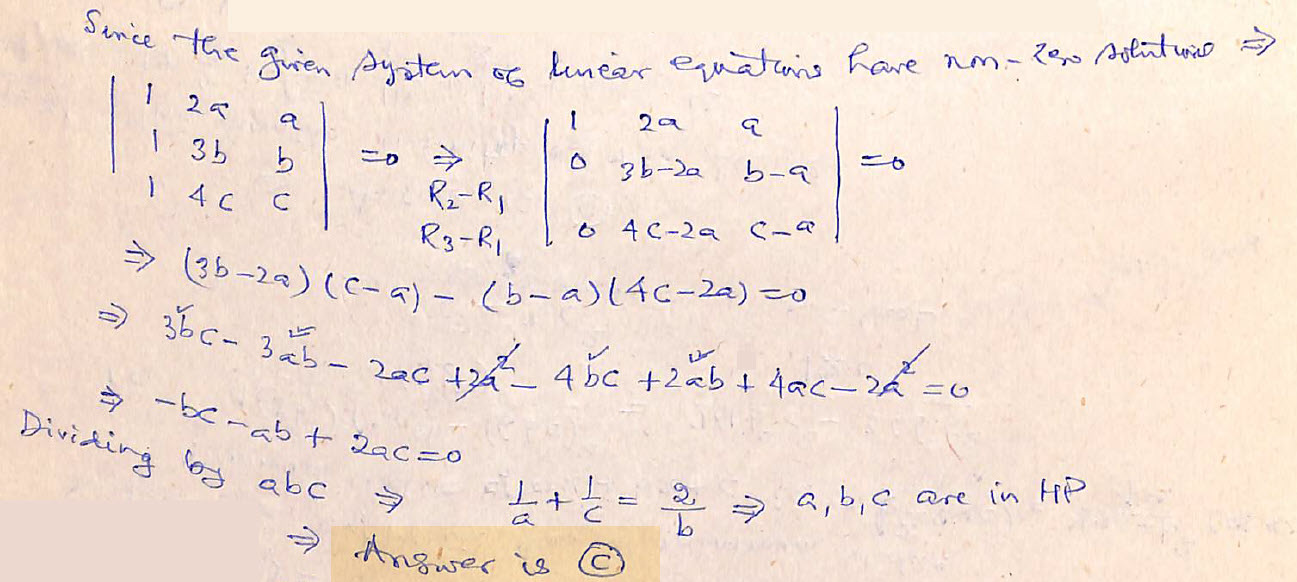 Since the given system of linear equations have non-zero solutions ⇒
| 1 2a a |
| 1 3b b | =0 ⇒ | 1 2a a |
| 1 4c c | R₂-R₁ | 0 3b-2a b-a | =0
R₃-R₁ | 0 4c-2a c-a |
⇒ (3b-2a)(c-a) - (b-a)(4c-2a)=0
⇒ 3bc - 3ab - 2ac +2a² - 4bc +2ab + 4ac - 2a² =0
⇒ -bc-ab + 2ac=0
Dividing by abc ⇒ 1/a + 1/c = 2/b ⇒ a, b, c are in HP
⇒ Answer is Ⓒ